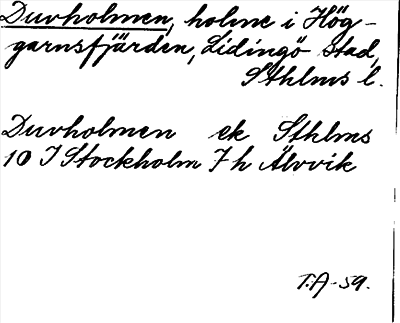 Duvholmen, holme i Hög-
garnsfjärden, Lidingö stad,
Sthlms l.
Duvholmen ek Sthlms
10 I Stockholm 7 h Älvvik
T.A-59.